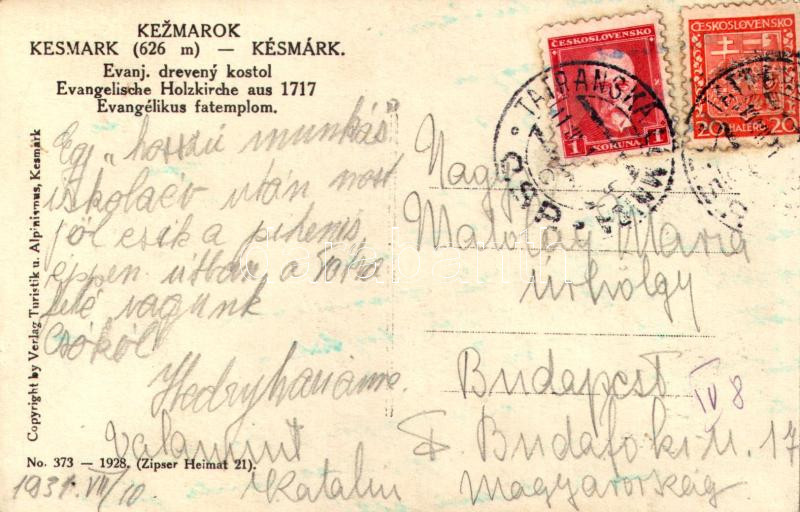 KEŽMAROK
KESMARK (626 m) — KÉSMÁRK.
Evanj. drevený kostol
Evangelische Holzkirche aus 1717
Evangélikus fatemplom.
Egy „hosszú munkás"
iskolaév után most
jól esik a pihenés,
éppen útban a Tátra
felé vagunk
Csókol
Hedry
valamint
Katalin
No. 373 — 1928. (Zipser Heimat 21).
1931. VII/10
Copyright by Verlag Turistik u. Alpinismus, Kesmárk
ČESKOSLOVENSKO
1 KORUNA 1
ČESKOSLOVENSKO
20 HALÉŘŮ 20
TATRANSKÁ
Nagys.
Mária
úrhölgy
Budapest
IV 8
F. Budafoki u. 17
Magyarország